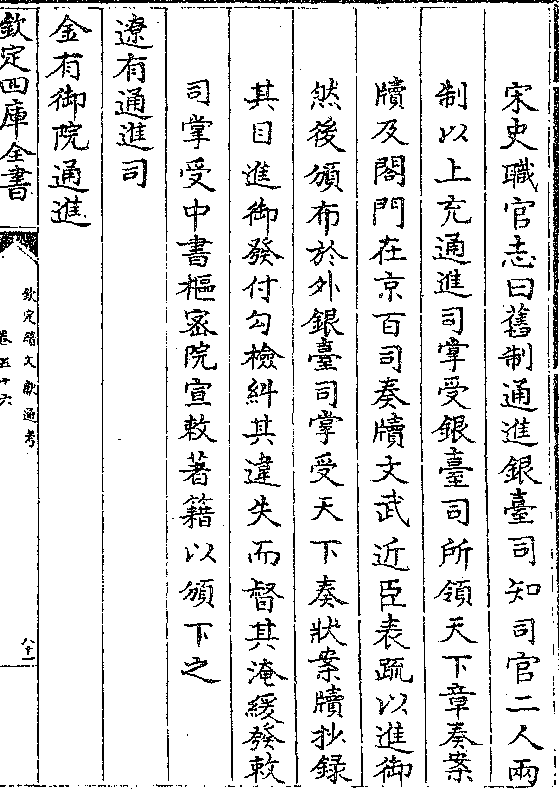 宋史職官志曰舊制通進銀臺司知司官二人兩
制以上充通進司掌受銀臺司所領天下章奏案
牘及閤門在京百司奏牘文武近臣表疏以進御
然後頒布於外銀臺司掌受天下奏狀案牘抄錄
其目進御發付勾檢糾其違失而督其淹緩發敕
司掌受中書樞密院宣敕著籍以頒下之
遼有通進司
金有御院通進
欽定四庫全書
欽定續文獻通考
卷五十六
八十一